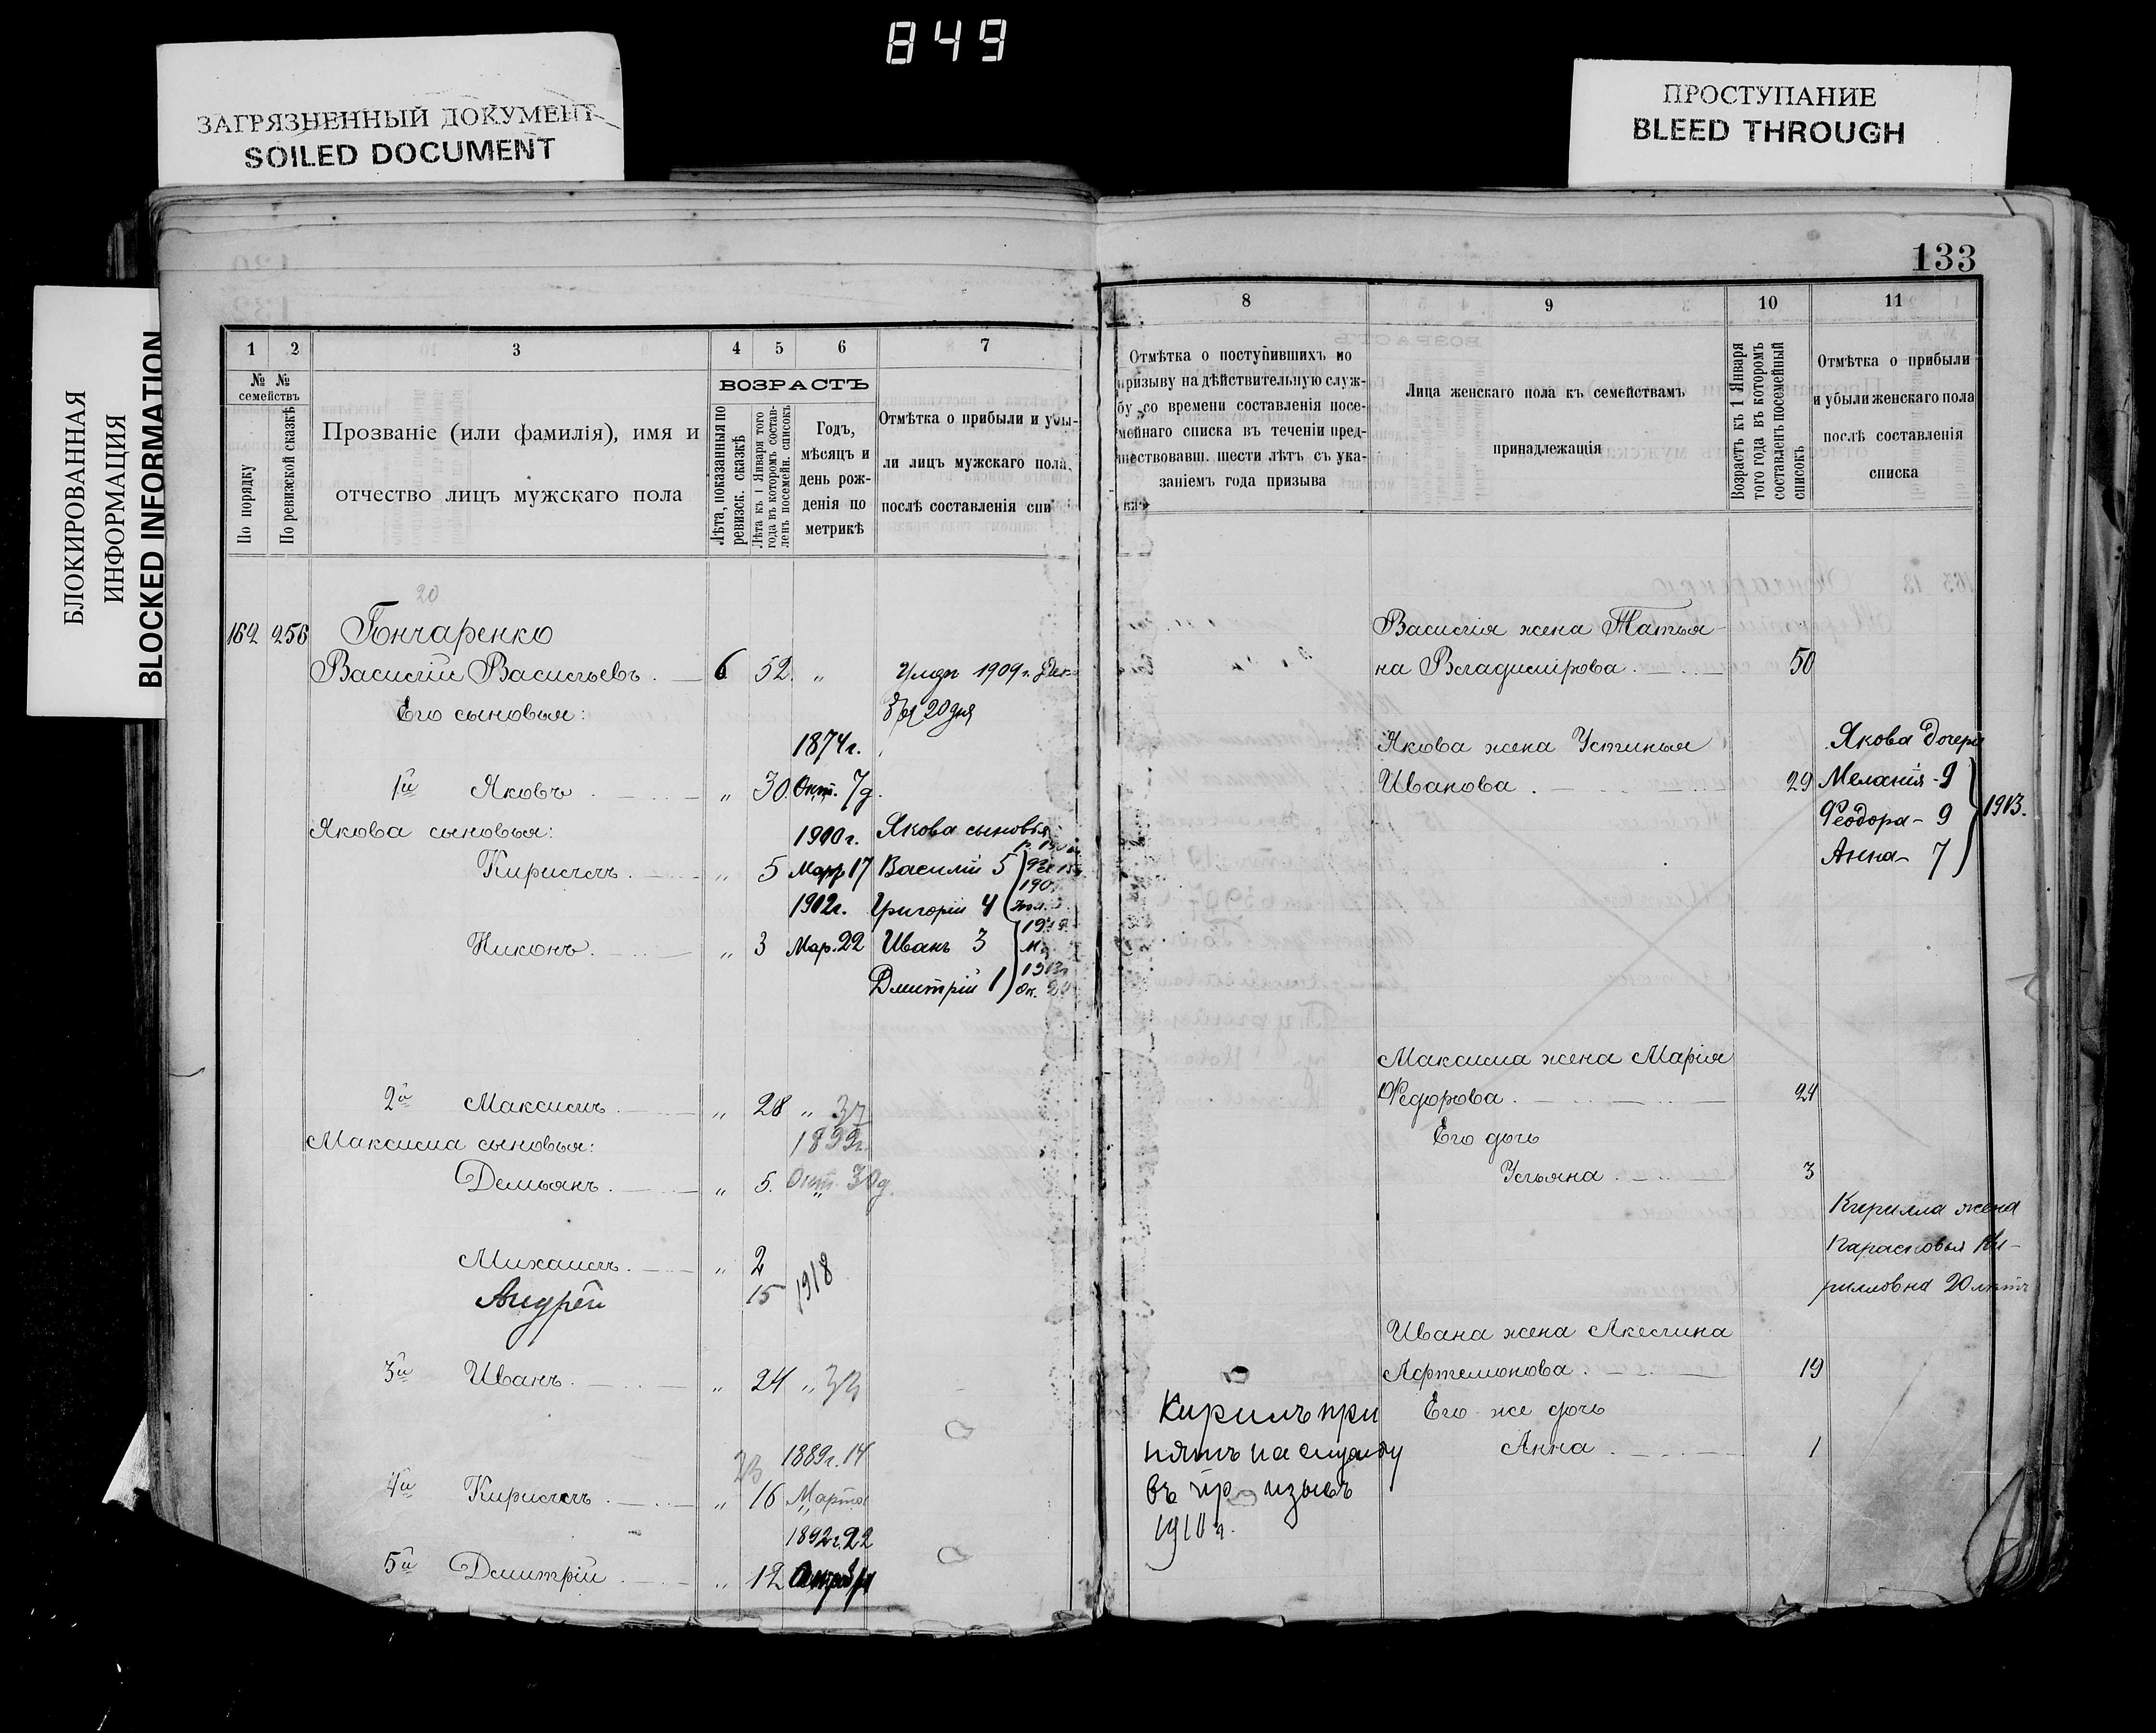 849
ЗАГРЯЗНЕННЫЙ ДОКУМЕНТ
SOILED DOCUMENT
ПРОСТУПАНИЕ
BLEED THROUGH
БЛОКИРОВАННАЯ
ИНФОРМАЦИЯ
BLOCKED INFORMATION
1 2 3 4 5 6 7
№ №
семействъ
По порядку
По ревизской сказкѣ
Прозваніе (или фамилія), имя и
отчество лицъ мужскаго пола
ВОЗРАСТЪ
Лѣта, показанныя по
ревизск. сказкѣ
Лѣта къ 1 Января того
года въ которомъ состав-
ленъ посемейн. списокъ
Годъ,
мѣсяцъ и
день рож-
денія по
метрикѣ
Отмѣтка о прибыли и убы-
ли лицъ мужскаго пола,
послѣ составленія спи
20
162 256 Гончаренко
Василій Васильевъ. 6 52. „ Умеръ 1909 г. Дек-
бря 20 дня
Его сыновья:
1874 г.
1й Яковъ „ 30. Окт. 7 д.
Якова сыновья: 1900 г. Якова сыновья
Кириллъ „ 5 Мар 17 Василій 5
1902 г. Григорій 4
Никонъ. „ 3 Мар. 22 Иванъ 3
Дмитрій 1 1913 Ок.
2й Максимъ. „ 28 „ 37
Максима сыновья: 1899 г.
Демьянъ. „ 5. Окт. 30 д.
Михаилъ. „ 2
Андрей 15 1918
3й Иванъ. „ 24 „ 33
23 1889 г. 14
4й Кириллъ. „ 16 Марта
1892 г. 22
5й Дмитрій „ 12 Октября
133
8 9 10 11
Отмѣтка о поступившихъ по
призыву на дѣйствительную служ-
бу со времени составленія посе-
мейнаго списка въ теченіи пред-
шествовавш. шести лѣтъ съ ука-
заніемъ года призыва
Лица женскаго пола къ семействамъ
принадлежащія
Возрастъ къ 1 Января
того года въ которомъ
составленъ посемейный
списокъ
Отмѣтка о прибыли
и убыли женскаго пола
послѣ составленія
списка
Василія жена Татья-
на Владимірова. 50
Якова жена Устинья Якова дочери
Иванова. 29 Меланія - 9
Феодора - 9 1913.
Анна - 7
Максима жена Марія
Федорова. 24
Его дочь
Ульяна. 3
Кирилла жена
Парасковья Ки-
рилловна 20 лѣтъ
Ивана жена Акелина
Афтемонова. 19
Кирилъ при Его же дочь
нятъ на службу Анна. 1
въ пр изывъ
1910 г.